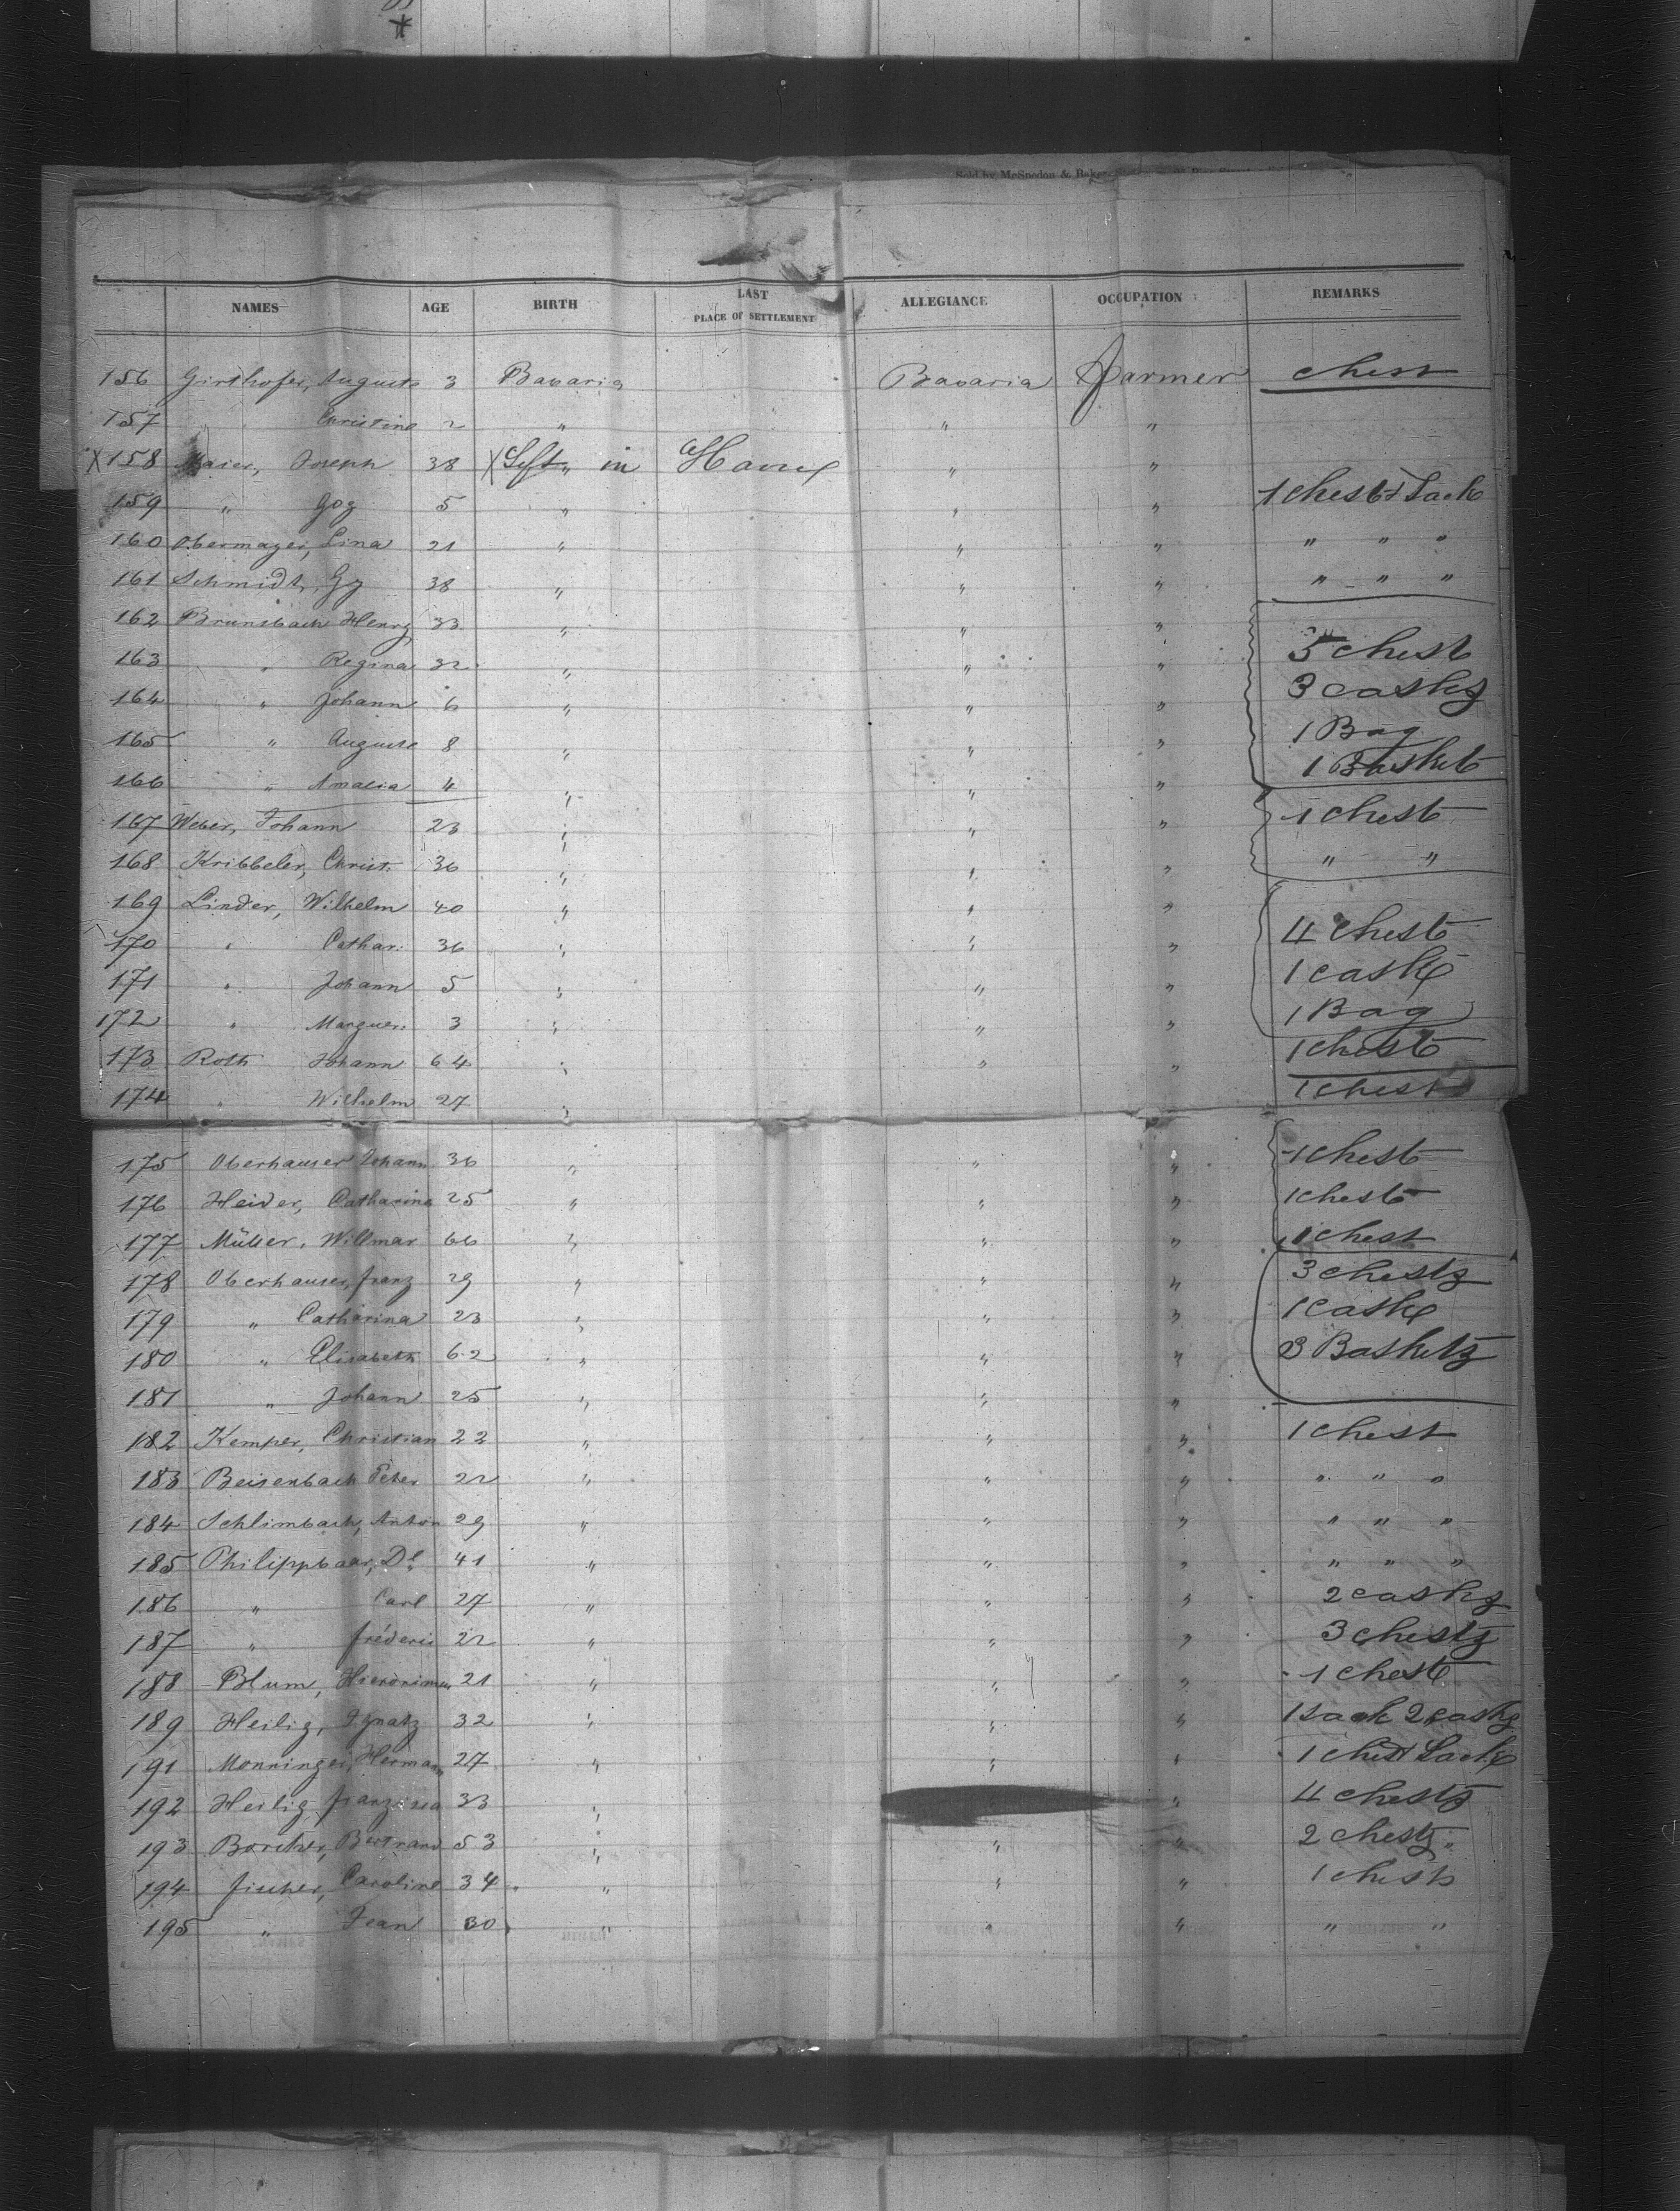 Sold by McSpedon & Baker,
NAMES AGE BIRTH LAST PLACE OF SETTLEMENT ALLEGIANCE OCCUPATION REMARKS
156 Girthofer, Auguste 3 Bavaria Bavaria Farmer chest
157 " Christine 2 " " "
X 158 Maier, Joseph 38 X Left " in Havre " "
159 " Gog 5 " " " 1 chest + Sack
160 Obermayer, Lina 21 " " " " " "
161 Schmidt, Gg 38 " " " " " "
162 Brunsbach Henry 33 " " "
163 " Regina 32 " " " 5 chest
164 " Johann 6 " " " 3 casks
165 " Auguste 8 " " " 1 Bag
166 " Amalia 4 " " " 1 Basket
167 Weber, Johann 23 " " " 1 chest
168 Kribbeler, Christ. 36 " " " " "
169 Linder, Wilhelm 40 " " "
170 " Cathar: 36 " " " 4 chest
171 " Johann 5 " " " 1 cask
172 " Marguer: 3 " " " 1 Bag
173 Roth Johann 64 " " " 1 chest
174 " Wilhelm 27 " 1 chest
175 Oberhauser Johann 36 " " " 1 chest
176 Heider, Catharina 25 " " " 1 chest
177 Müller, Willmar 66 " " " 1 chest
178 Oberhauser, franz 29 " " " 3 chests
179 " Catharina 23 " " " 1 cask
180 " Elisabeth 62 " " " 3 Baskets
181 " Johann 25 " " "
182 Kemper, Christian 22 " " " 1 chest
183 Beisenbach Peter 22 " " " " " "
184 Schlimbach, Anton 29 " " " " " "
185 Philippbaar, Dl 41 " " " " " "
186 " Carl 27 " " " 2 casks
187 " fréderic 22 " " " 3 chests
188 Blum, Hieronimus 21 " " " 1 chest
189 Heilig, Ignatz 32 " " " 1 sack 2 casks
191 Monninger, Hermann 27 " " " 1 chest Sack
192 Heilig franzisca 33 " " 4 chests
193 Bertrand 53 " " " 2 chests "
194 fischer, Caroline 34 " " " 1 chest
195 " Jean 30 " " " " "